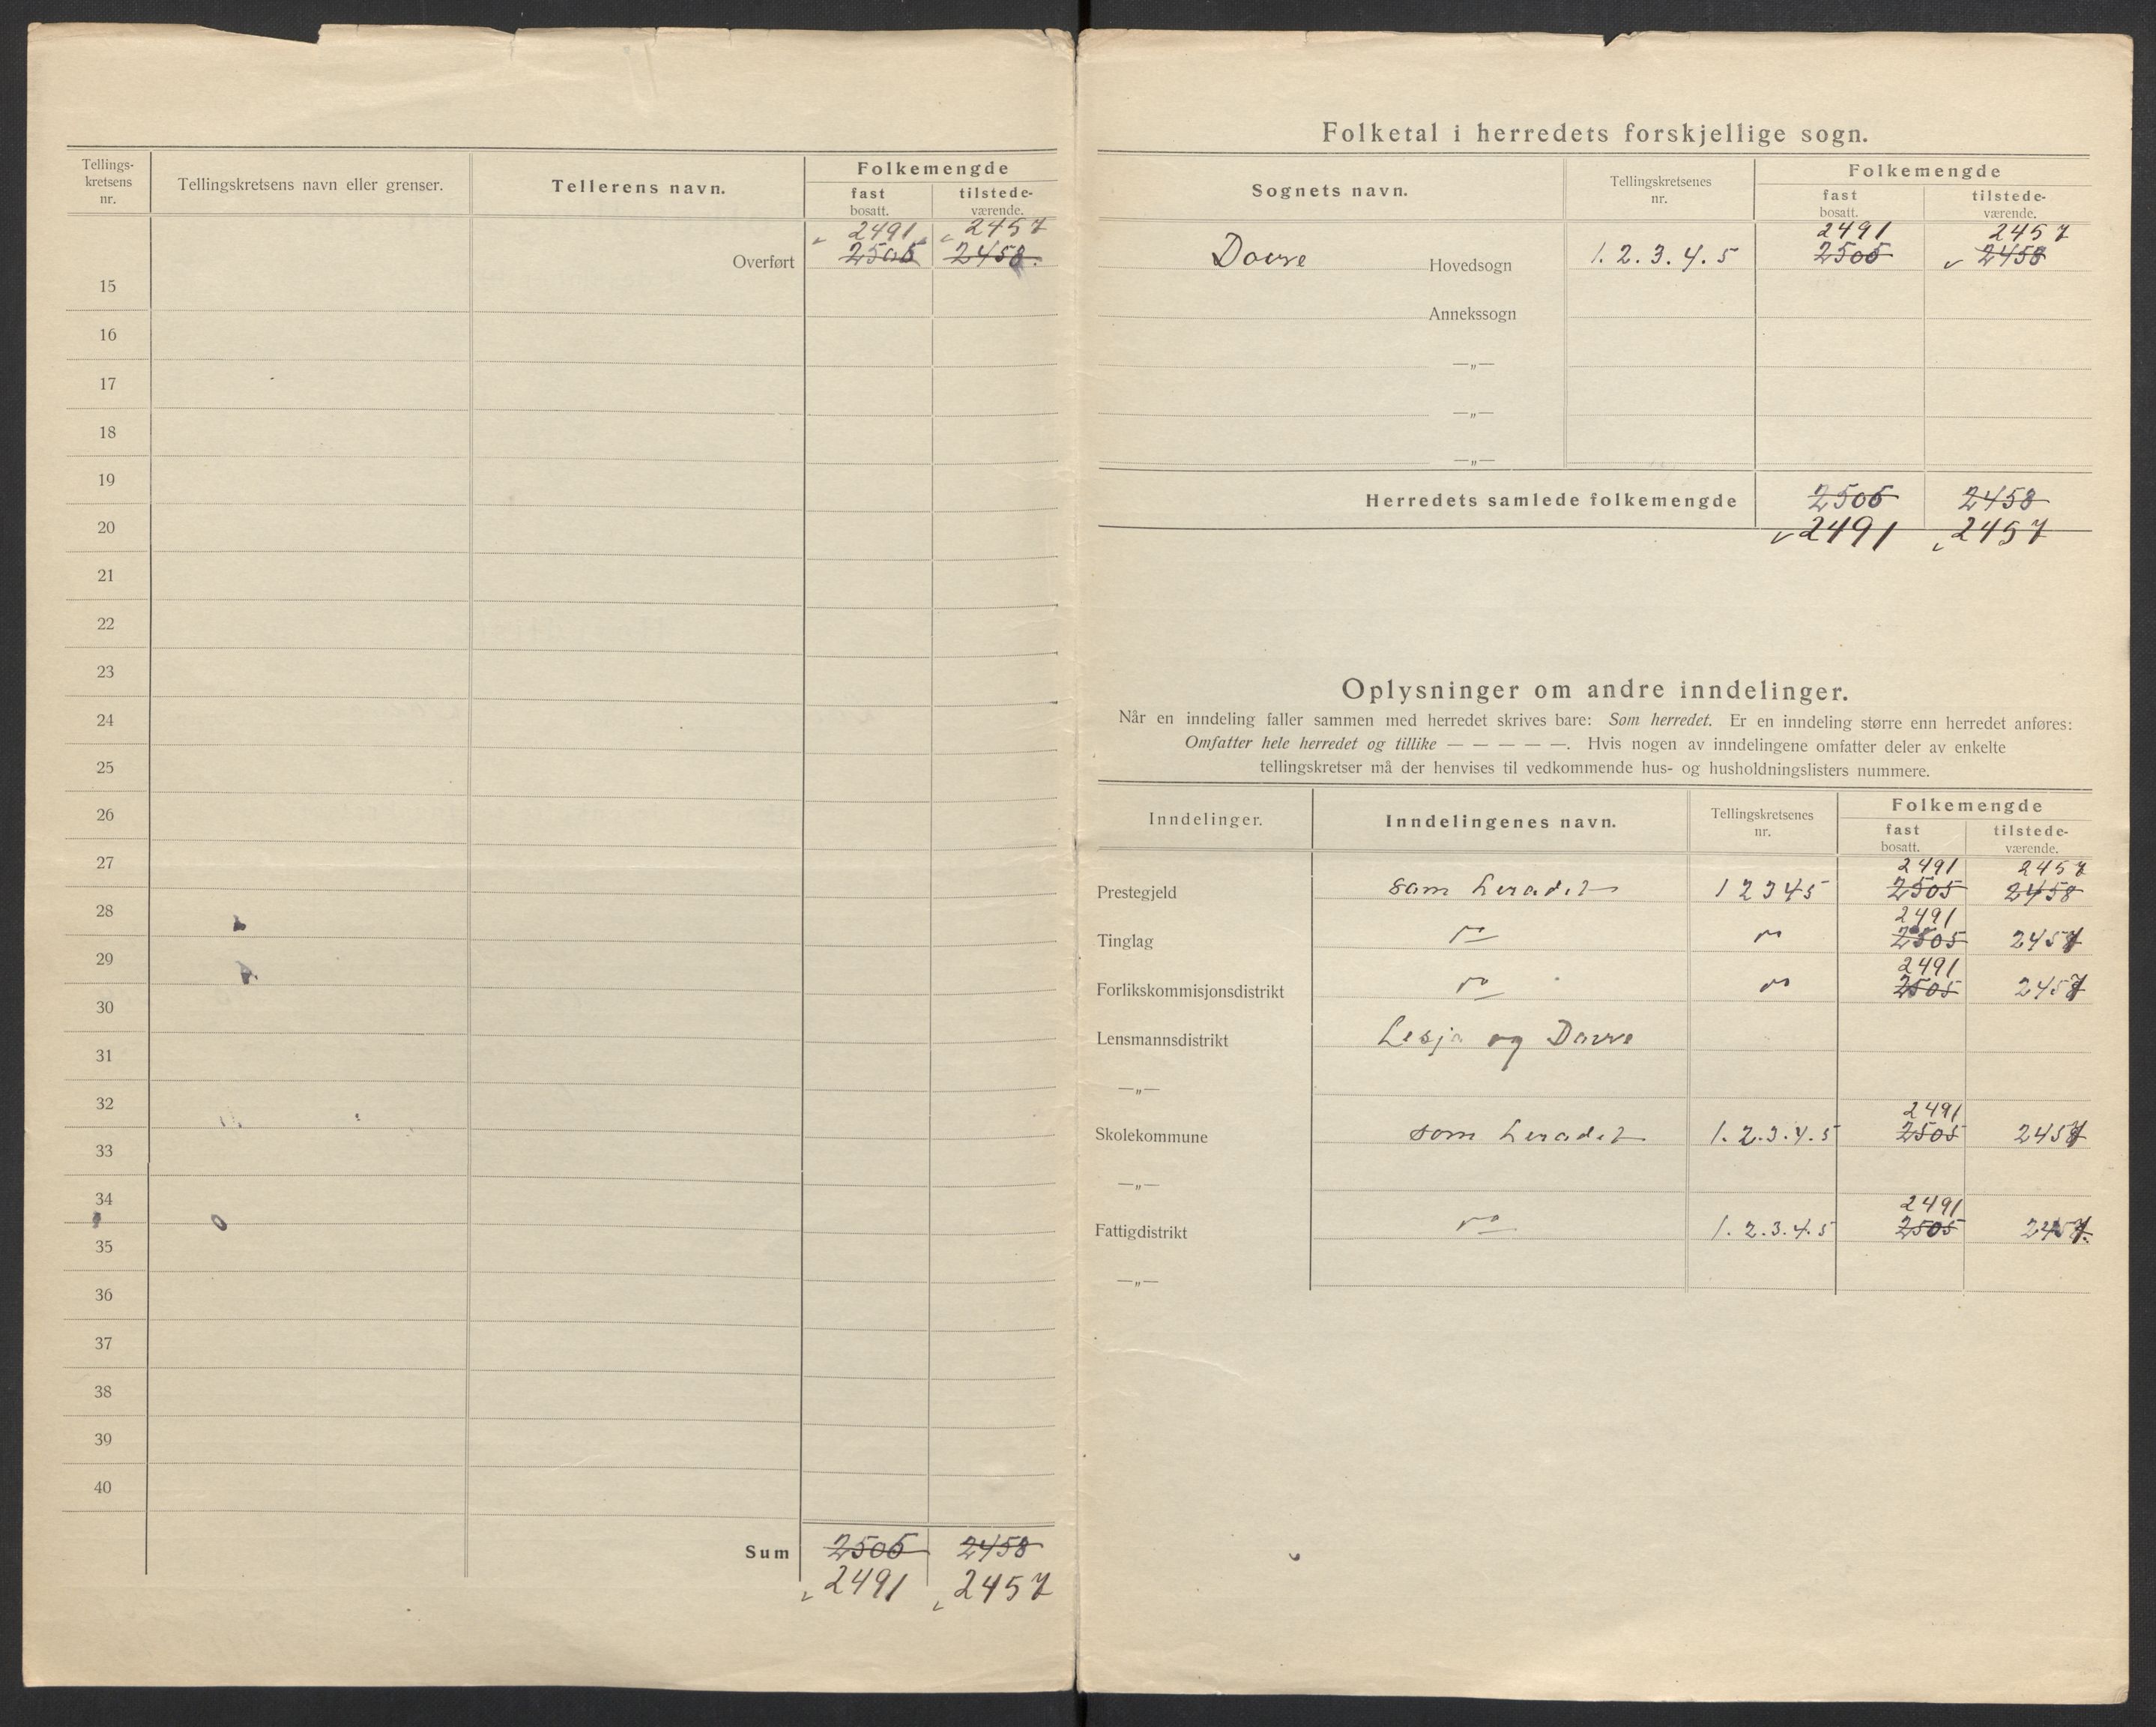 Tellings-
kretsens
nr.
Tellingskretsens navn eller grenser.
Tellerens navn.
Folkemengde
fast
bosatt.
tilstede-
værende.
2491 2457
Overført 2505 2458
15
16
17
18
19
20
21
22
23
24
25
26
27
28
29
30
31
32
33
34
35
36
37
38
39
40
Sum 2505 2458
2491 2457
Folketal i herredets forskjellige sogn.
Sognets navn.
Tellingskretsenes
nr.
Folkemengde
fast
bosatt.
tilstede-
værende.
2491 2457
Dovre Hovedsogn 1. 2. 3. 4. 5 2505 2458
Annekssogn
—„—
—„—
—„—
Herredets samlede folkemengde 2505 2458
2491 2457
Oplysninger om andre inndelinger.
Når en inndeling faller sammen med herredet skrives bare: Som herredet. Er en inndeling større enn herredet anføres:
Omfatter hele herredet og tillike — — — — —. Hvis nogen av inndelingene omfatter deler av enkelte
tellingskretser må der henvises til vedkommende hus- og husholdningslisters nummere.
Inndelinger.
Inndelingenes navn.
Tellingskretsenes
nr.
Folkemengde
fast
bosatt.
tilstede-
værende.
2491 2457
Prestegjeld som heradet 1 2 3 4 5 2505 2458
2491
Tinglag 2505 2457
2491
Forlikskommisjonsdistrikt 2505 2457
Lensmannsdistrikt Lesja og Dovre
—„—
2491
Skolekommune som heradet 1. 2. 3. 4. 5 2505 2457
—„—
2491
Fattigdistrikt 1. 2. 3. 4. 5 2505 2457.
—„—